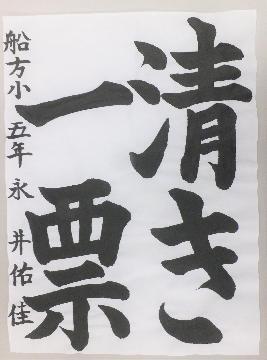 清き
一票
船方小 五年 永井佑佳